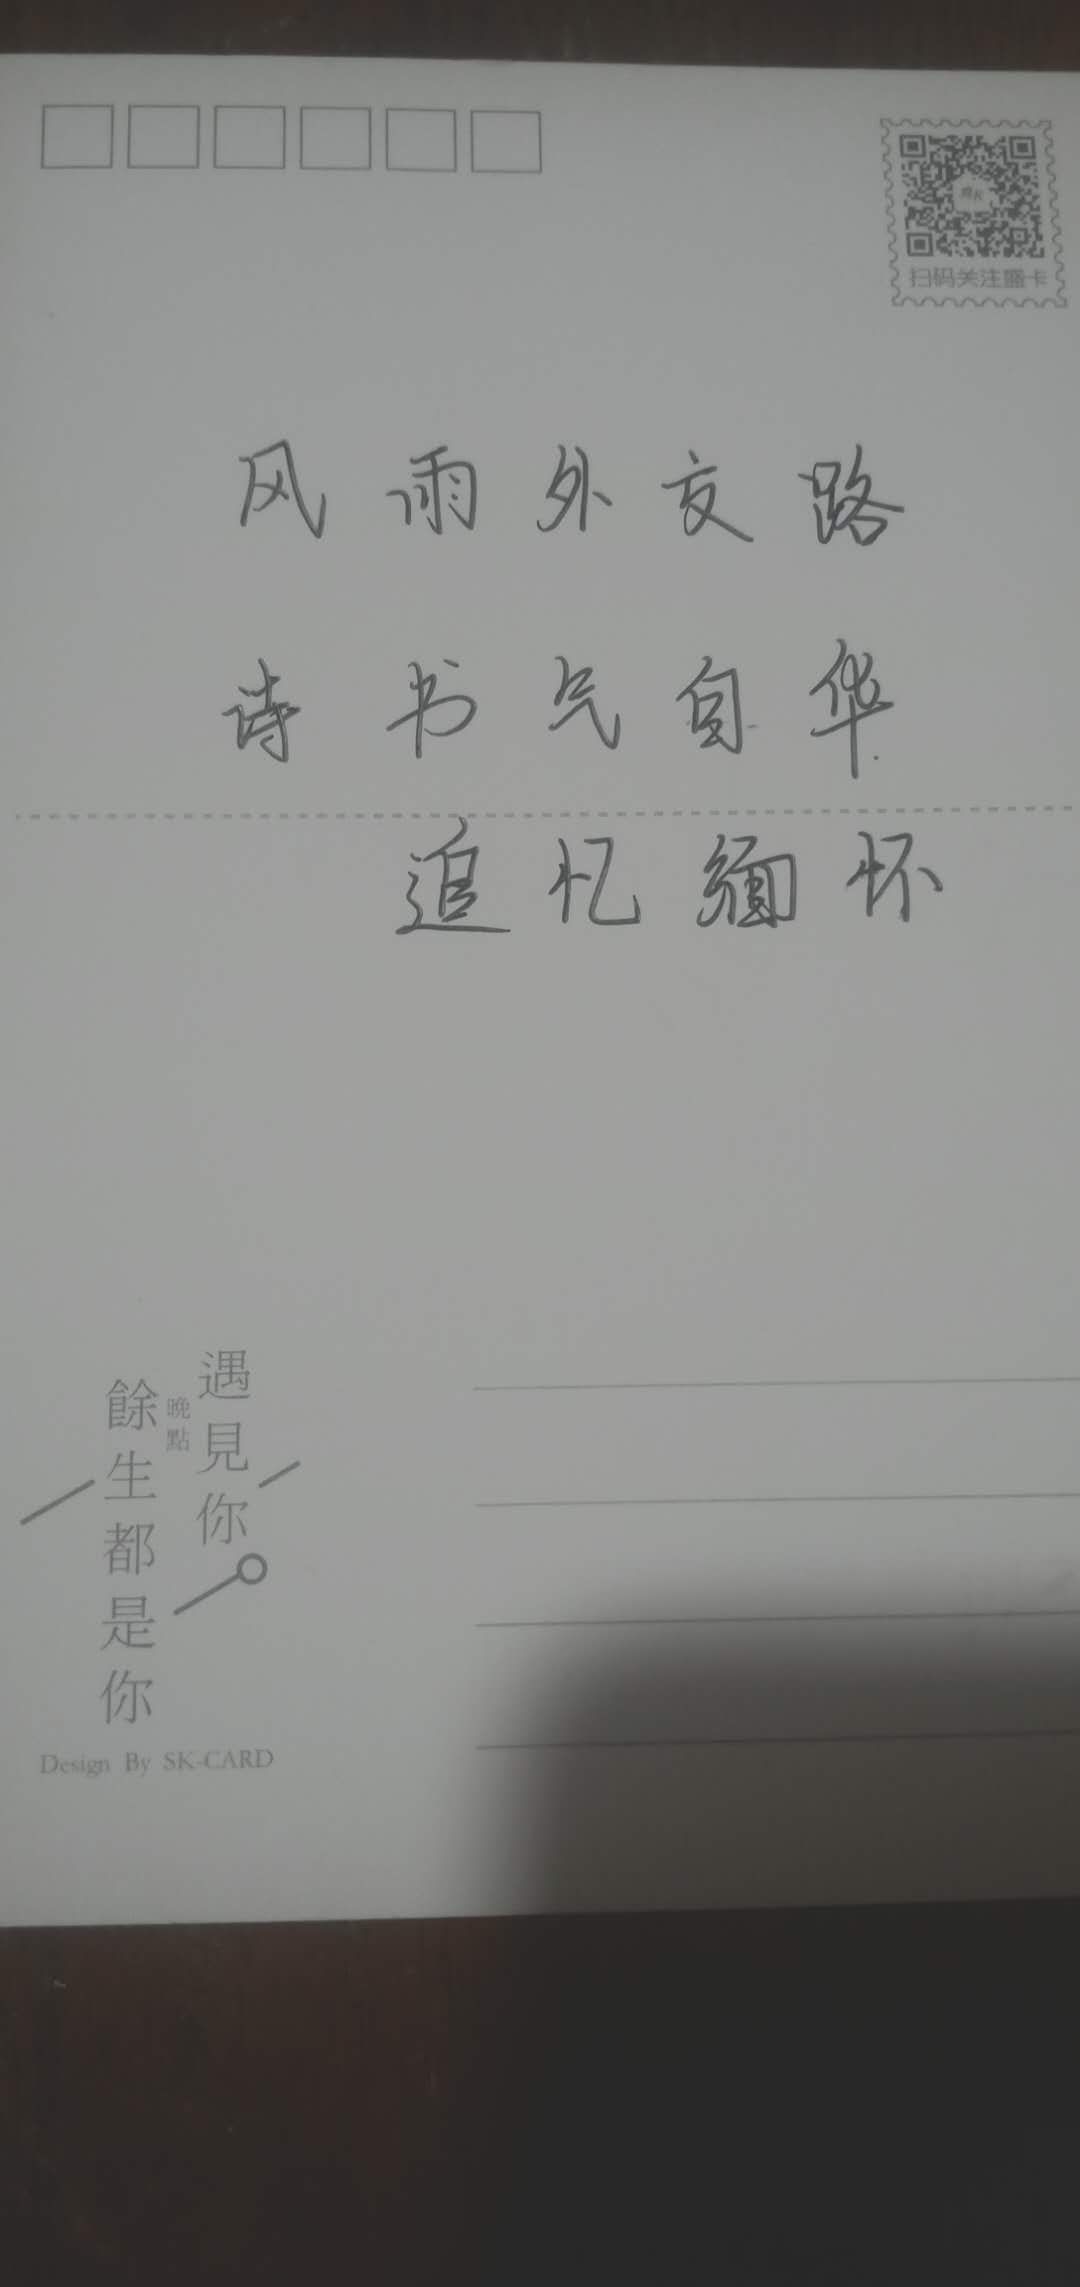 扫码关注盛卡
风雨外交路
诗书气自华
追忆缅怀
遇見你
晚點
餘生都是你
Design By SK-CARD